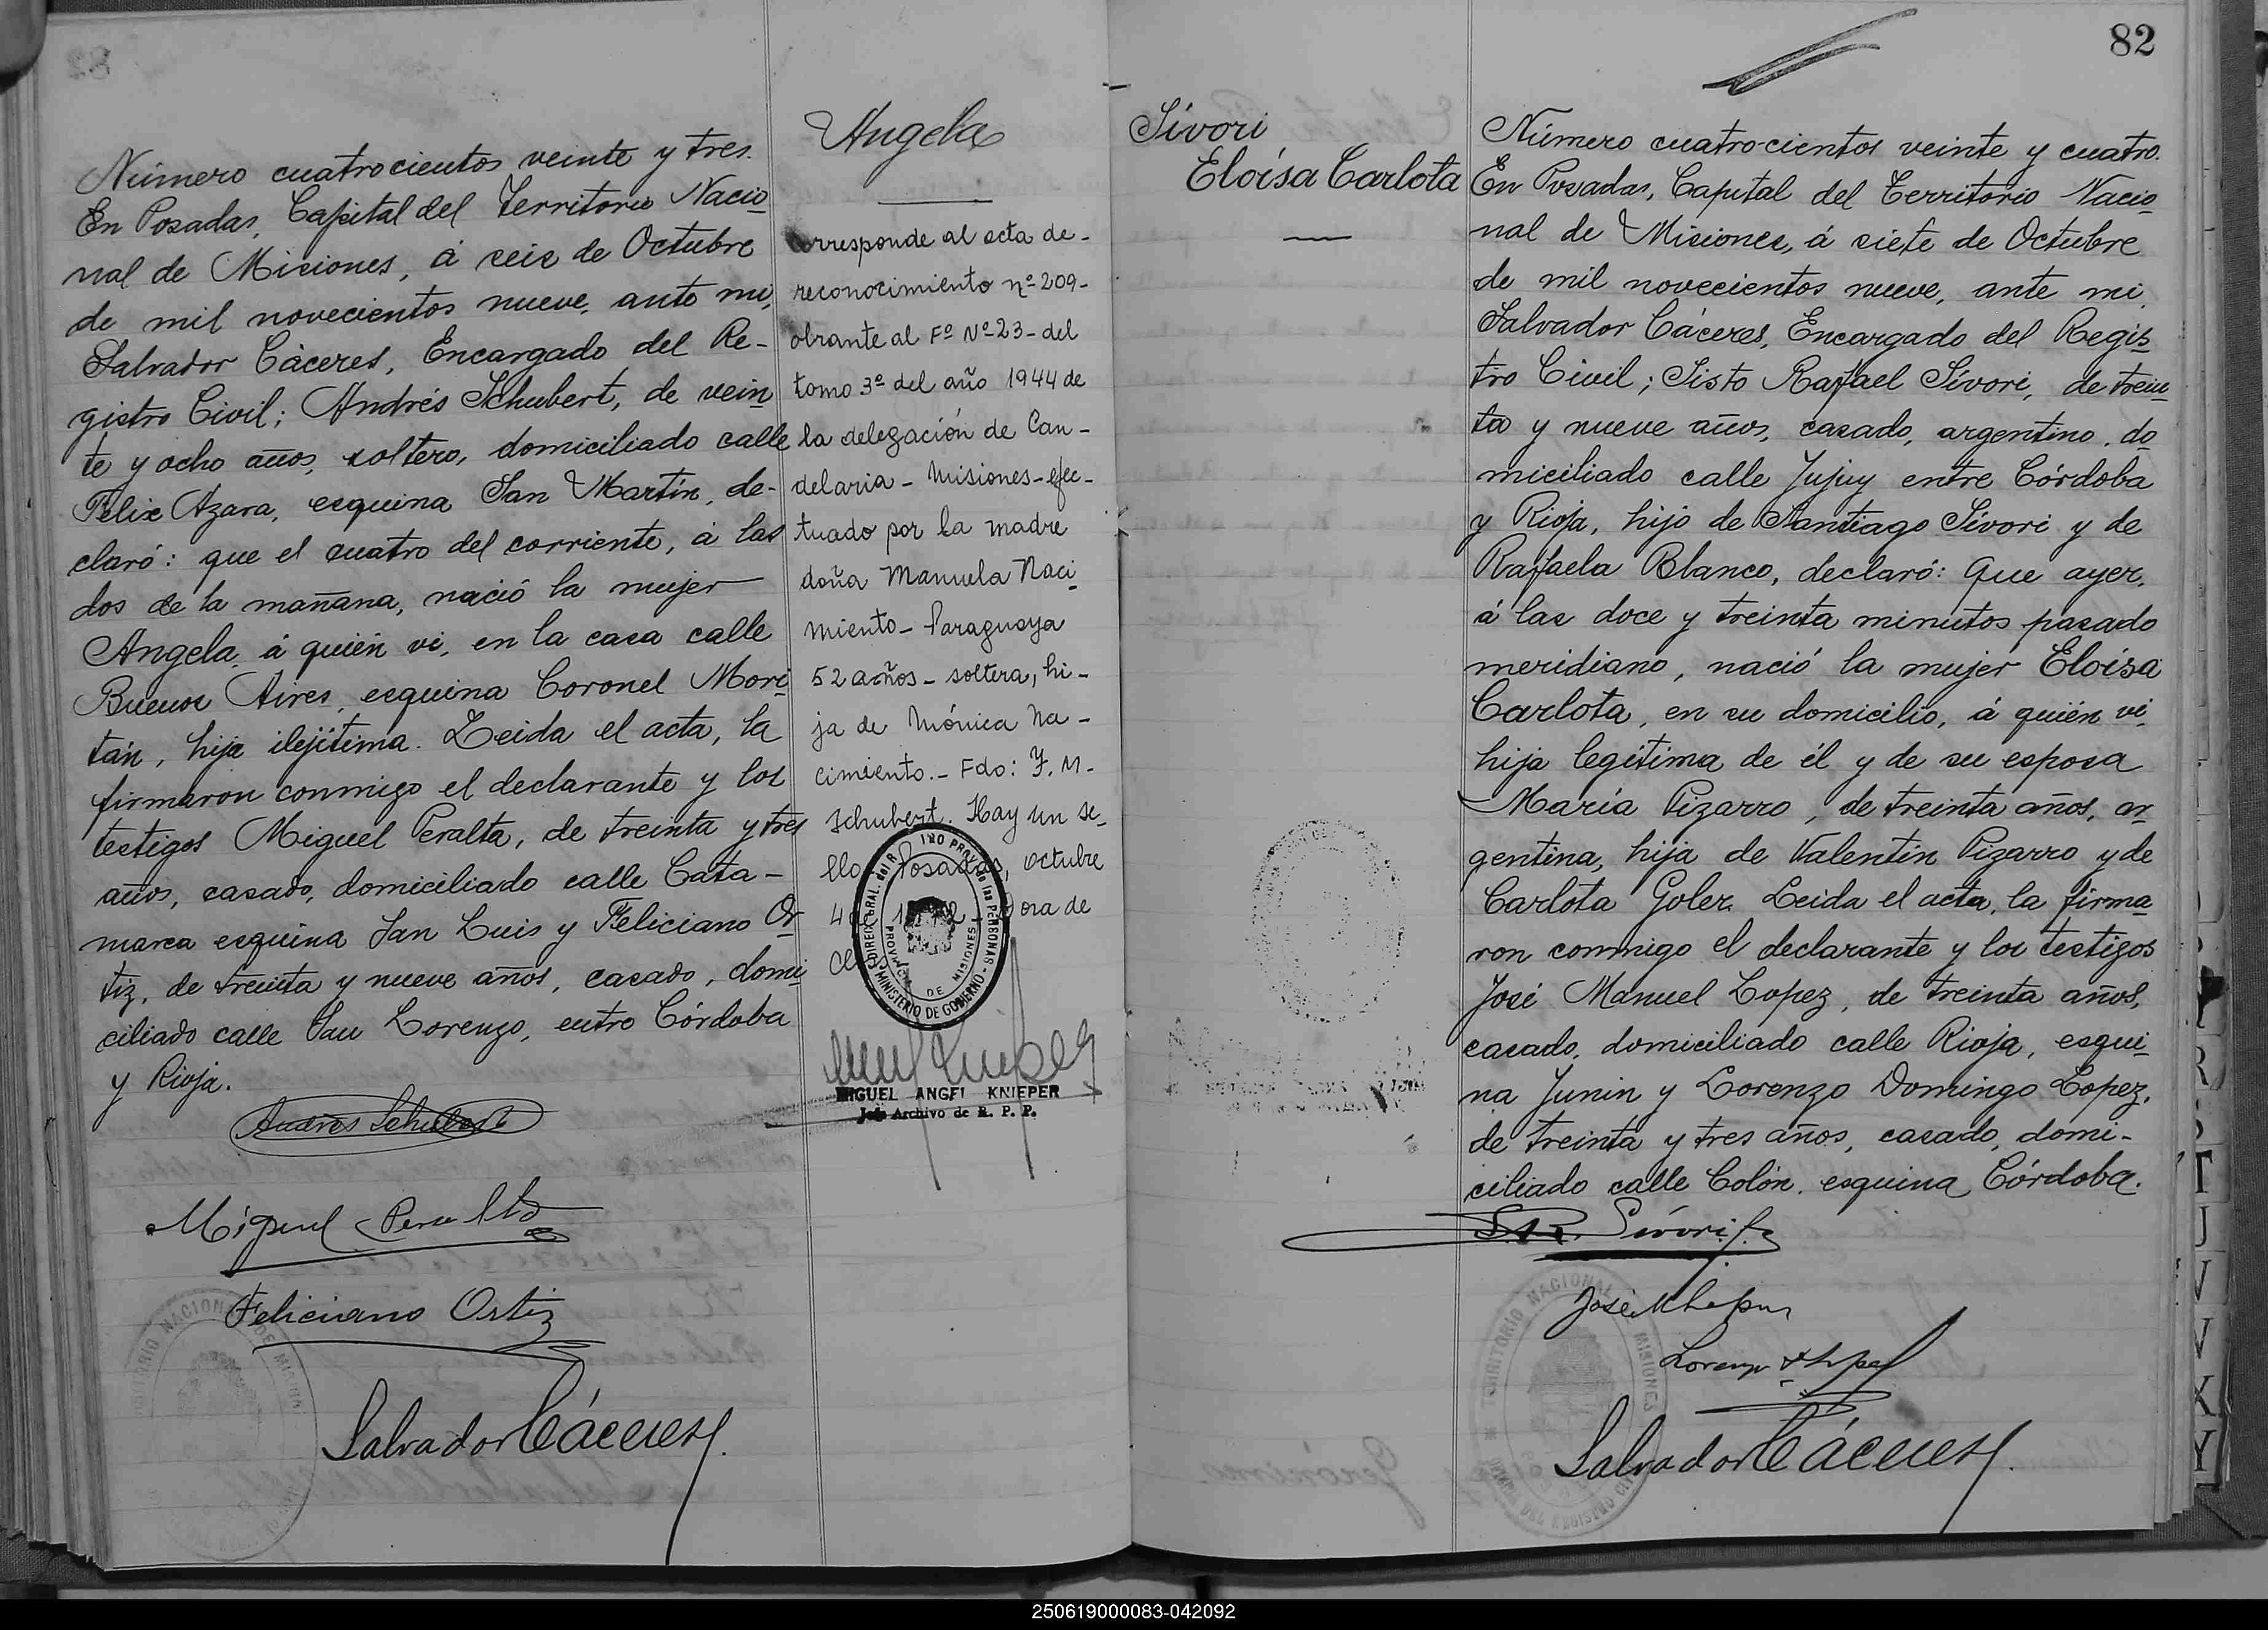 Número cuatrocientos veinte y tres.
En Posadas, Capital del Territorio Nacio
nal de Misiones, á seis de Octubre
de mil novecientos nueve, ante mi,
Salvador Cáceres, Encargado del Re-
gistro Civil; Andrés Schubert, de vein
te y ocho años, soltero, domiciliado calle
Felix Azara, esquina San Martín, de-
claró: que el cuatro del corriente, á las
dos de la mañana, nació la mujer
Angela, á quién vi, en la casa calle
Buenos Aires, esquina Coronel Mori
tán, hija ilejítima. Leida el acta, la
firmaron conmigo el declarante y los
testigos Miguel Peralta, de treinta y tres
años, casado, domiciliado calle Cata-
marca esquina San Luis y Feliciano Or
tiz, de treinta y nueve años, casado, domi
ciliado calle San Lorenzo, entre Córdoba
y Rioja.
Andrés Schubert
Miguel Peralta
Feliciano Ortiz
Salvador Cáceres
Angela
Corresponde al acta de-
reconocimiento nº 209-
obrante al Fº Nº 23- del
tomo 3º del año 1944 de
la delegación de Can-
delaria - Misiones - efec-
tuado por la madre
doña Manuela Naci
miento - Paraguaya
52 años - soltera, hi-
ja de Mónica Na-
cimiento. - Fdo: F. M-
Schubert. Hay un se-
llo Posadas, octubre
4 de
MINISTERIO DE GOBIERNO
PROVINCIA DE MISIONES
MIGUEL ANGEL KNIEPER
Jefe Archivo de R. P. P.
82
Sívori
Eloísa Carlota
Número cuatro-cientos veinte y cuatro.
En Posadas, Capital del Territorio Nacio
nal de Misiones, á siete de Octubre
de mil novecientos nueve, ante mi,
Salvador Cáceres, Encargado del Regis
tro Civil; Sisto Rafael Sívori, de trein
ta y nueve años, casado, argentino, do
miciliado calle Jujuy entre Córdoba
y Rioja, hijo de Santiago Sívori y de
Rafaela Blanco, declaró: Que ayer,
á las doce y treinta minutos pasado
meridiano, nació la mujer Eloísa
Carlota, en su domicilio, á quién vi,
hija legítima de él y de su esposa
María Pizarro, de treinta años, ar
gentina, hija de Valentín Pizarro y de
Carlota Goler. Leida el acta, la firma
ron conmigo el declarante y los testigos
José Manuel Lopez, de treinta años,
casado, domiciliado calle Rioja, esqui
na Junin y Lorenzo Domingo Lopez,
de treinta y tres años, casado, domi-
ciliado calle Colón, esquina Córdoba.
S. R. Sívori
José M Lopez
Lorenzo D Lopez
Salvador Cáceres
TERRITORIO NACIONAL DE MISIONES
250619000083-042092